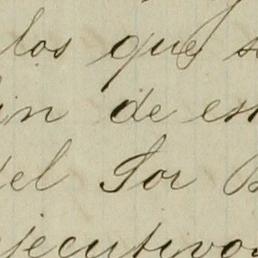 los que s
in de es
del Sor B
ejecutivo